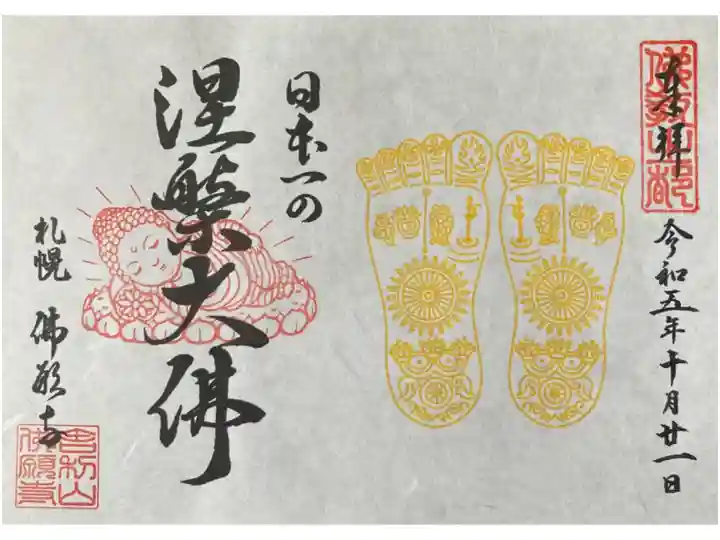 奉拝
令和五年十月廿一日
日本一の
涅槃大佛
札幌 佛願寺
佛願寺